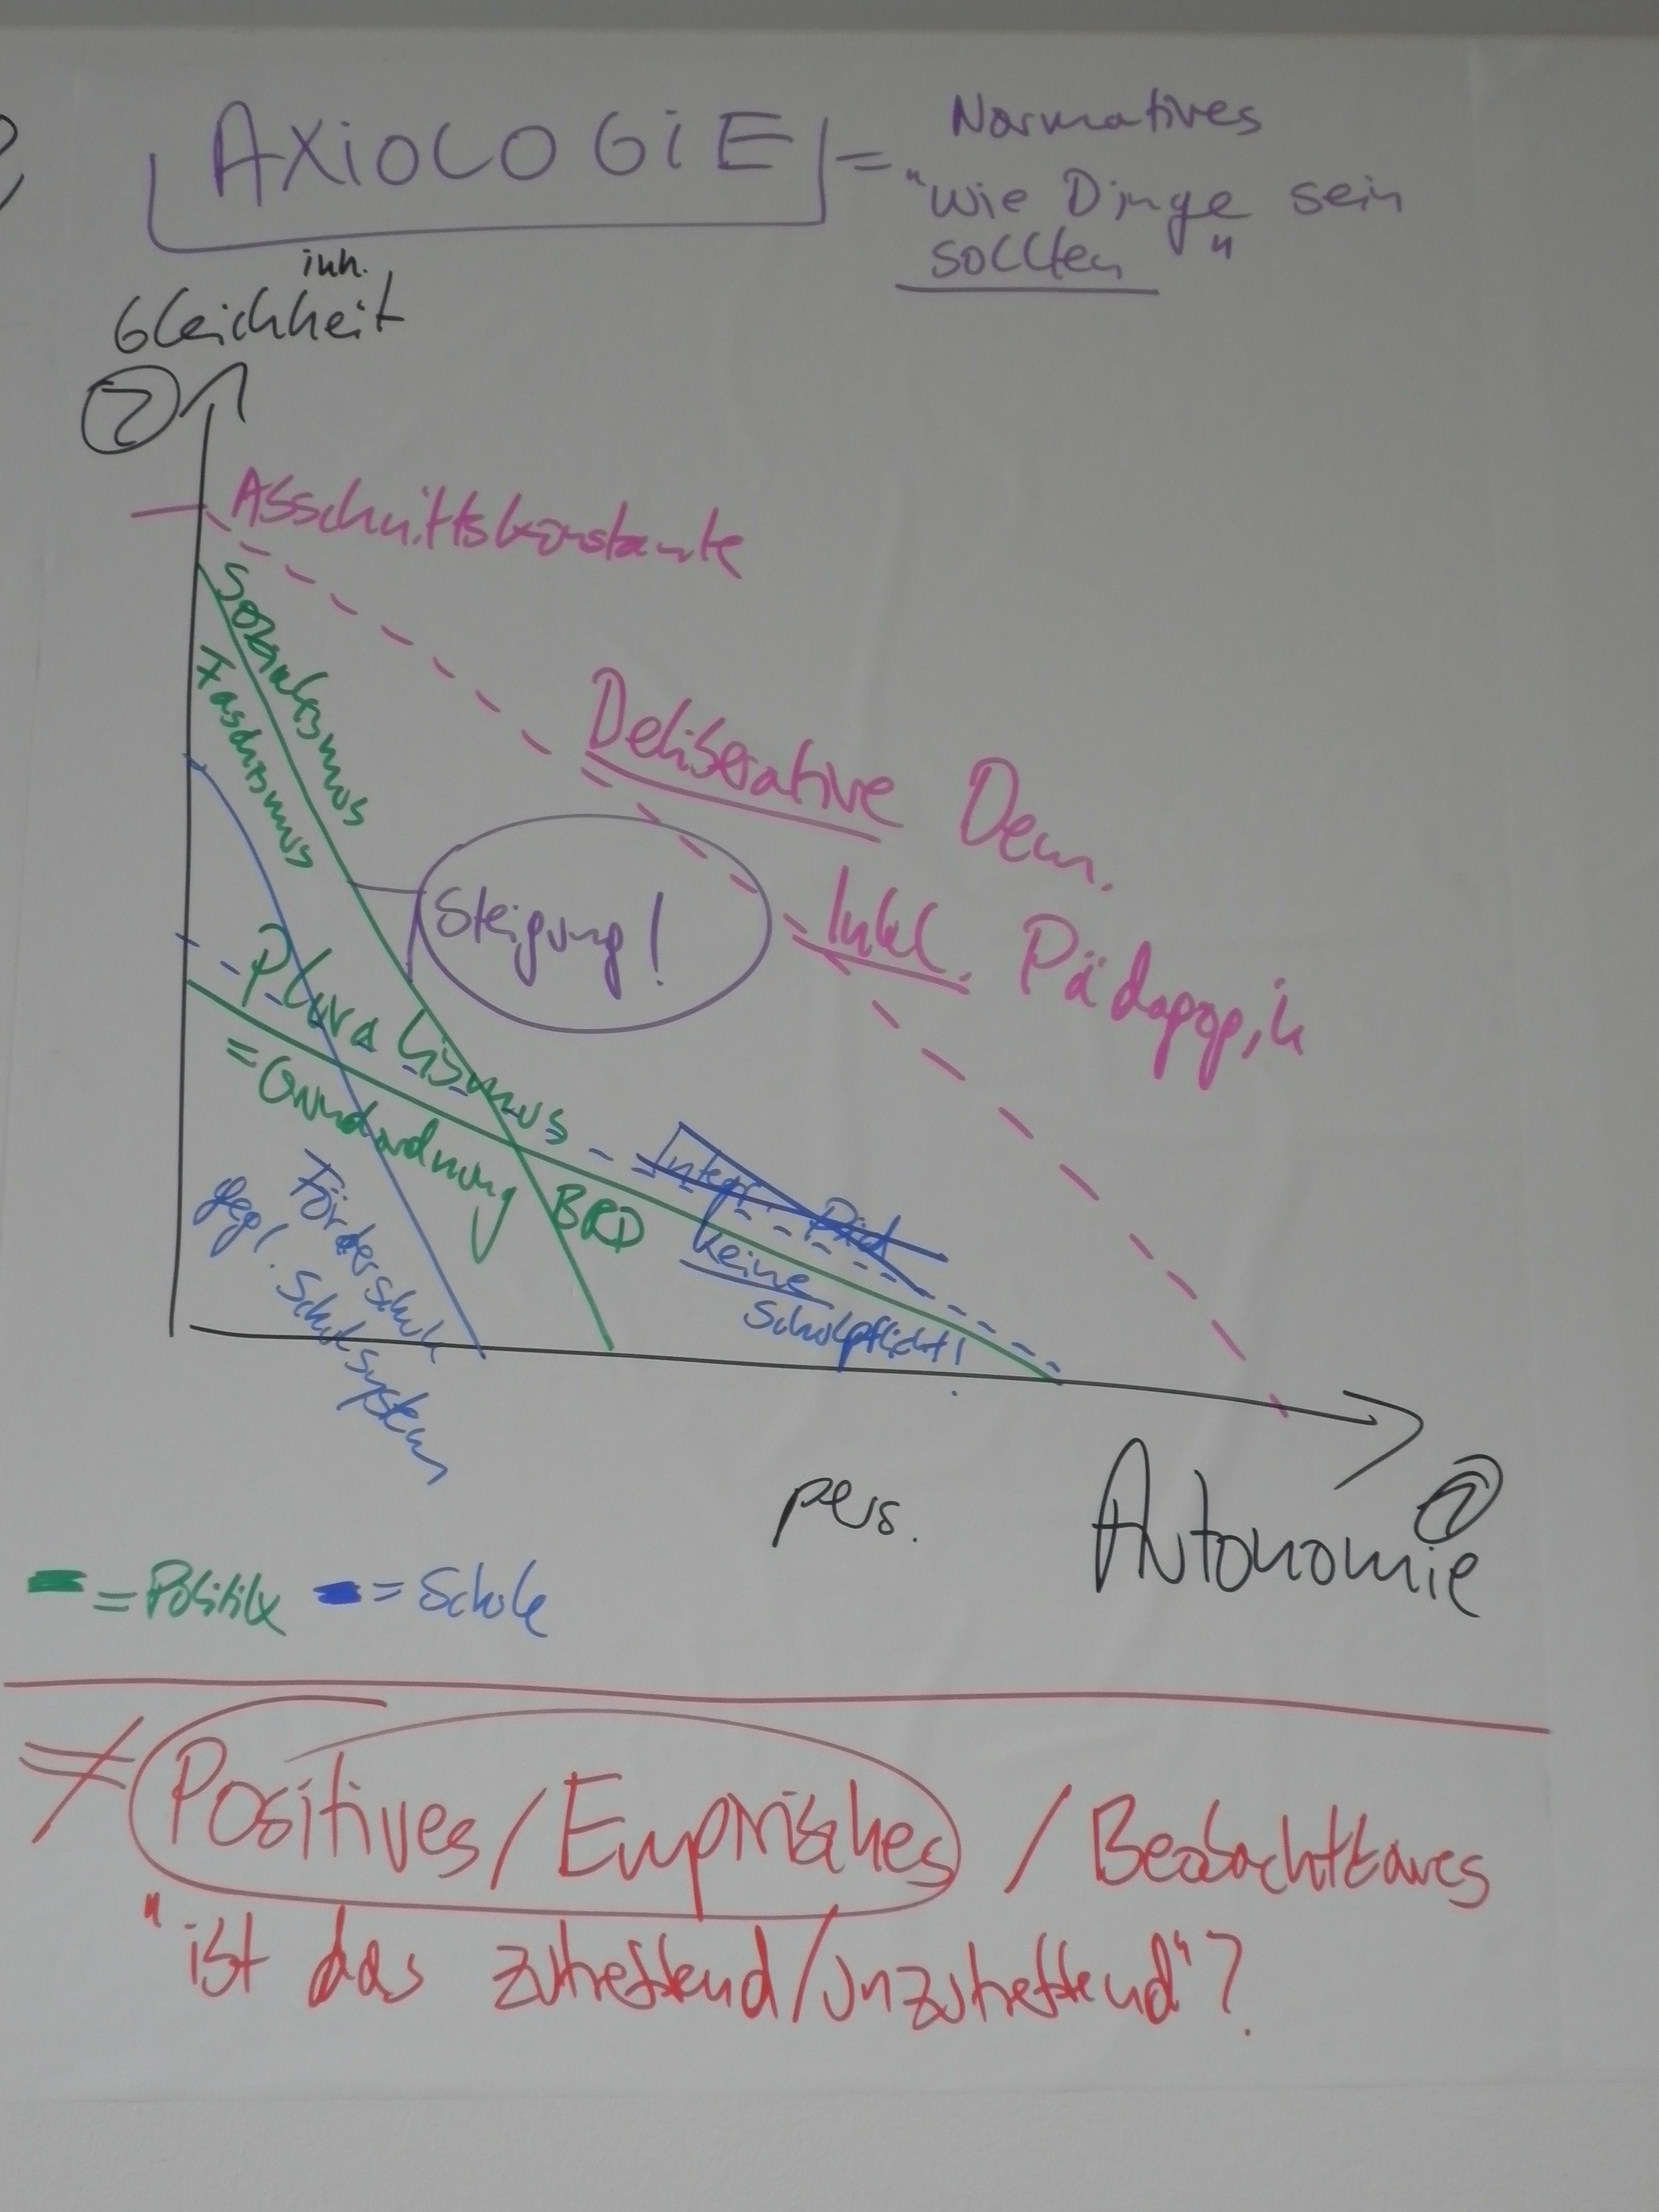 AXiOLOGiE =
Normatives
"Wie Dinge sein
sollten"
inh.
Gleichheit
2
Asschnittskonstante
Sozialismus
Faschismus
Deliberative Dem.
Steigung!
Inkl. Pädagogik
Pluralismus
= Grundordnung BRD
Integr. Päd
keine
Schulpflicht!
Förderschul
gegl. Schulsystem
pers.
Autonomie
1
= Politik = Schule
≠ Positives / Empirisches / Beobachtbares
"ist das zutreffend/unzutreffend"?